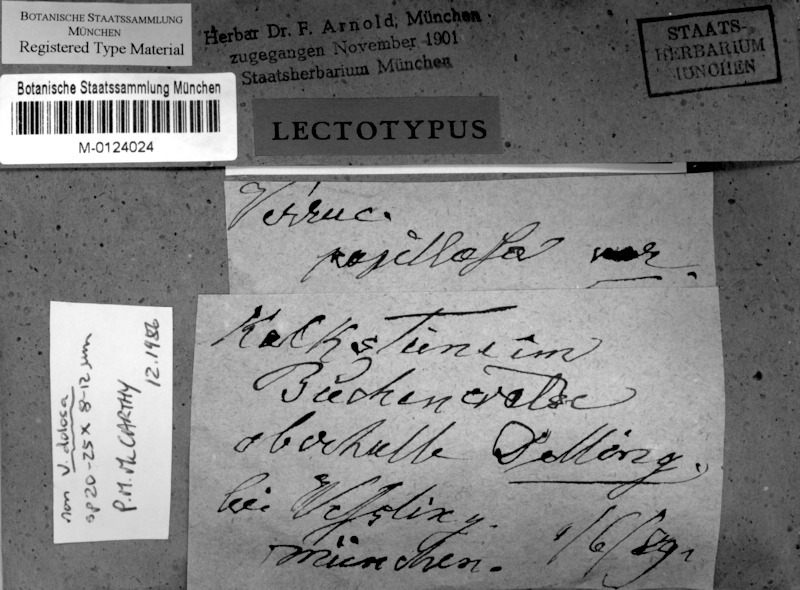 BOTANISCHE STAATSSAMMLUNG
MÜNCHEN
Registered Type Material
Herbar Dr. F. Arnold, München
zugegangen November 1901
Staatsherbarium München
STAATS-
HERBARIUM
MÜNCHEN
Botanische Staatssammlung München
M-0124024
LECTOTYPUS
Verruc.
papillosa var.
Kalksteine im
Buchenwalde
oberhalb Delling
bei Weßling.
München. 1/6/89.
non V. dolosa
sp 20-25 x 8-12 µm
P.M. McCARTHY
12.1986